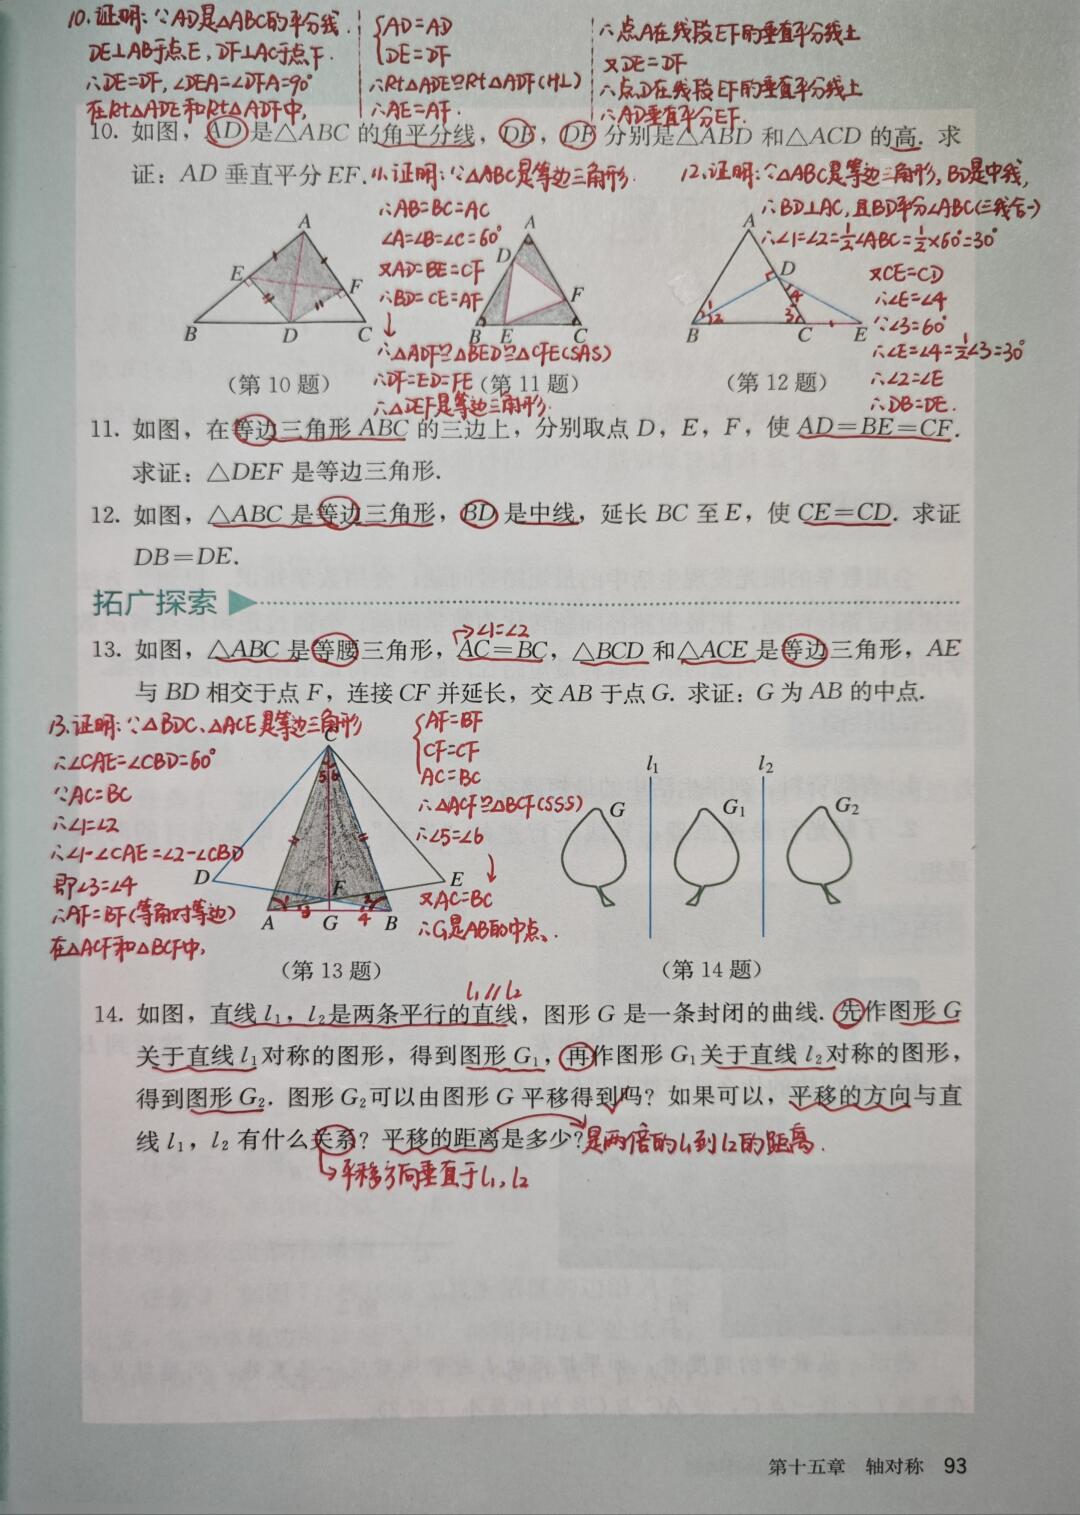 10.证明:∵AD是△ABC的平分线.
DE⊥AB于点E,DF⊥AC于点F.
∴DE=DF,∠DEA=∠DFA=90°
在Rt△ADE和Rt△ADF中,
{AD=AD
DE=DF
∴Rt△ADE≌Rt△ADF(HL)
∴AE=AF.
∴点A在线段EF的垂直平分线上
又DE=DF
∴点D在线段EF的垂直平分线上
∴AD垂直平分EF.
10. 如图,AD是△ABC的角平分线,DE,DF分别是△ABD和△ACD的高. 求
证:AD垂直平分EF.
11.证明:∵△ABC是等边三角形.
∴AB=BC=AC
∠A=∠B=∠C=60°
又AD=BE=CF
∴BD=CE=AF
↓
∴△ADF≌△BED≌△CFE(SAS)
∴DF=ED=FE
∴△DEF是等边三角形.
12.证明:∵△ABC是等边三角形,BD是中线,
∴BD⊥AC,且BD平分∠ABC(三线合一)
∴∠1=∠2=½∠ABC=½×60°=30°
又CE=CD
∴∠E=∠4
∵∠3=60°
∴∠E=∠4=½∠3=30°
∴∠2=∠E
∴DB=DE.
A
E
F
B
D
C
(第10题)
A
D
F
B
E
C
(第11题)
A
D
4
1
2
3
B
C
E
(第12题)
11. 如图,在等边三角形ABC的三边上,分别取点D,E,F,使AD=BE=CF.
求证:△DEF是等边三角形.
12. 如图,△ABC是等边三角形,BD是中线,延长BC至E,使CE=CD. 求证
DB=DE.
拓广探索
→∠1=∠2
13. 如图,△ABC是等腰三角形,AC=BC,△BCD和△ACE是等边三角形,AE
与BD相交于点F,连接CF并延长,交AB于点G. 求证:G为AB的中点.
13.证明:∵△BDC、△ACE是等边三角形
∴∠CAE=∠CBD=60°
∵AC=BC
∴∠1=∠2
∴∠1-∠CAE=∠2-∠CBD
即∠3=∠4
∴AF=BF(等角对等边)
在△ACF和△BCF中,
{AF=BF
CF=CF
AC=BC
∴△ACF≌△BCF(SSS)
∴∠5=∠6
↓
又AC=BC
∴G是AB的中点.
C
5 6
D
E
F
1
2
3
4
A
G
B
(第13题)
l₁
l₂
G
G₁
G₂
(第14题)
l₁∥l₂
14. 如图,直线l₁,l₂是两条平行的直线,图形G是一条封闭的曲线. 先作图形G
关于直线l₁对称的图形,得到图形G₁,再作图形G₁关于直线l₂对称的图形,
得到图形G₂. 图形G₂可以由图形G平移得到吗?如果可以,平移的方向与直
线l₁,l₂有什么关系?平移的距离是多少?是两倍的l₁到l₂的距离.
→平移方向垂直于l₁,l₂
第十五章 轴对称 93